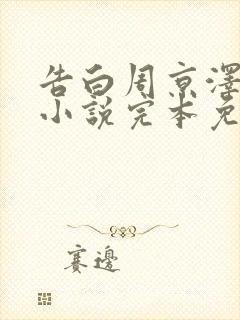 告白周京澤
小說完本免
賽邊